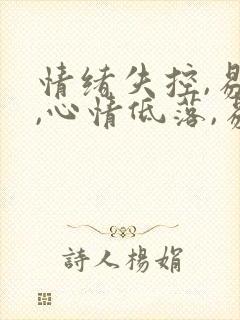 情绪失控,易
,心情低落,易
詩人楊娟